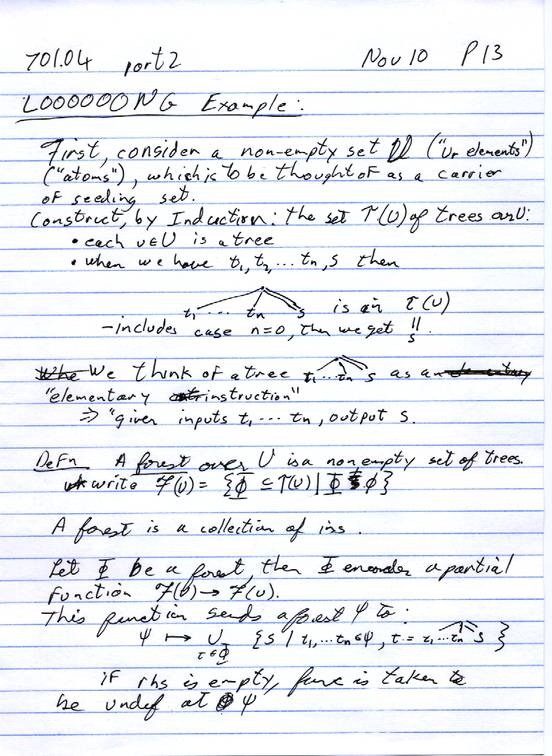 701.04 part 2 Nov 10 P13
LOOOOOONG Example:
First, consider a non-empty set U ("Ur elements")
("atoms"), which is to be thought of as a carrier
of seeding set.
Construct, by Induction: the set T(U) of trees over U:
• each u∈U is a tree
• when we have t₁, t₂, ... tₙ, s then
t₁ ... tₙ s is in T(U)
- includes case n=0, then we get s.
We think of a tree t₁...tₙ s as an
"elementary instruction"
⇒ "given inputs t₁ ... tₙ, output s.
Defn A forest over U is a nonempty set of trees.
write F(U) = {Φ ⊆ T(U) | Φ ≠ ∅}
A forest is a collection of ins.
Let Φ be a forest, then Φ encodes a partial
function F(U) → F(U).
This function sends a forest Ψ to:
Ψ ↦ ∪ τ∈Φ {s | t₁, ... tₙ ∈ Ψ, τ = t₁...tₙ s}
if rhs is empty, func is taken to
be undef at Ψ